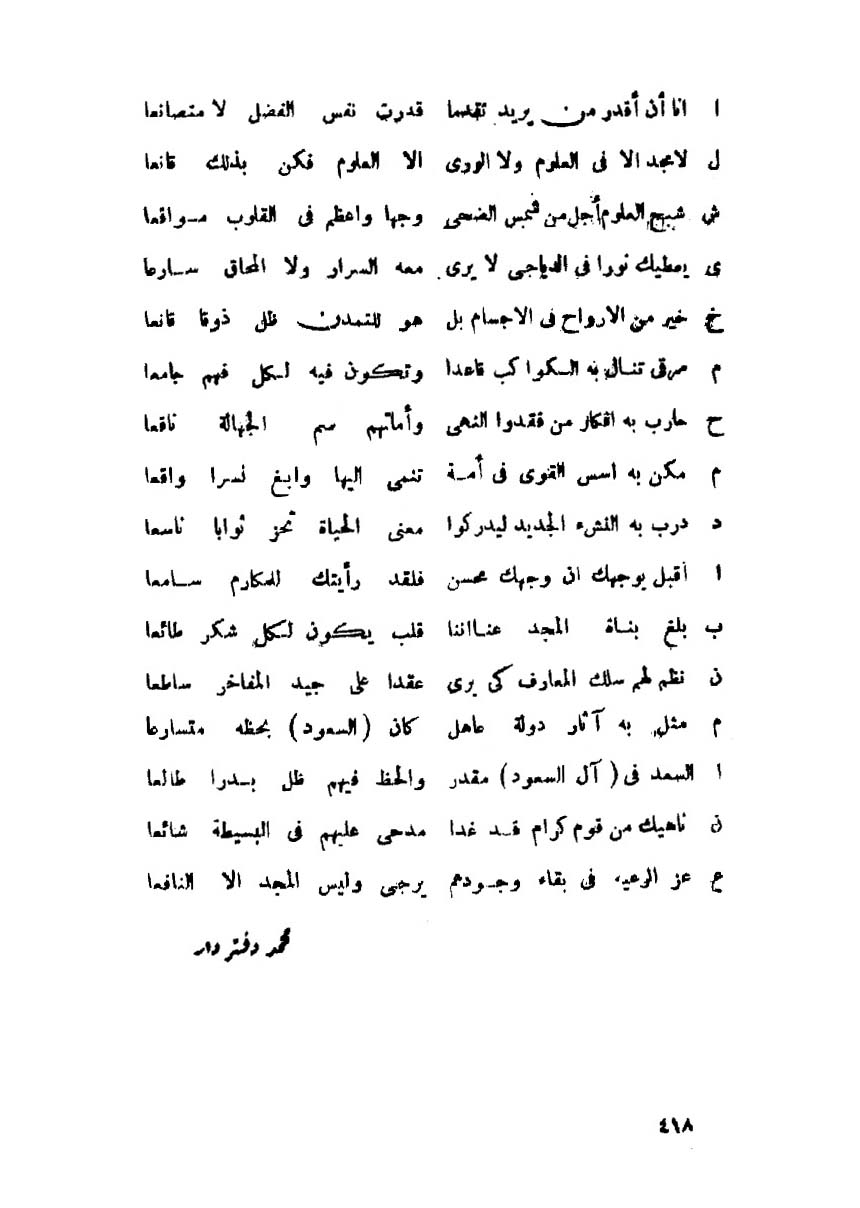 ا انا أن أقدر من يريد تقدما قدرت نفس الفضل لا متصانعا
ل لامجد الا فى العلوم ولا الورى الا العلوم فكن بذلك قانعا
ش شبح العلوم أجل من شمس الضحى وجها واعظم فى القلوب مواقعا
ى يعطيك نورا في الدياجى لا يرى معه السرار ولا المحاق سارعا
خ خير من الارواح فى الاجسام بل هو للتمدن ظل ذوقا قانعا
م مرقى تنال به الكواكب قاعدا وتكون فيه لكل فهم جامعا
ح حارب به افكار من فقدوا النهى وأماتهم سم الجهالة ناقعا
م مكن به اسس القوى فى أمة تنمى اليها وابغ نسرا واقعا
د درب به النشء الجديد ليدركوا معنى الحياة تحز ثوابا ناسعا
ا أقبل بوجهك ان وجهك محسن فلقد رأيتك للمكارم سامعا
ب بلغ بناة المجد عنااننا قلب يكون لكل شكر طائعا
ن نظم لهم سلك المعارف كى يرى عقدا على جيد المفاخر ساطعا
م مثل به آثار دولة عاهل كان (السعود) بحظه متسارعا
ا السعد فى (آل السعود) مقدر والحظ فيهم ظل بدرا طالعا
ن ناهيك من قوم كرام قد غدا مدحى عليهم فى البسيطة شائعا
ع عز الرعيه فى بقاء وجودهم يرجى وليس المجد الا النافعا
محمد دفتر دار
٤١٨